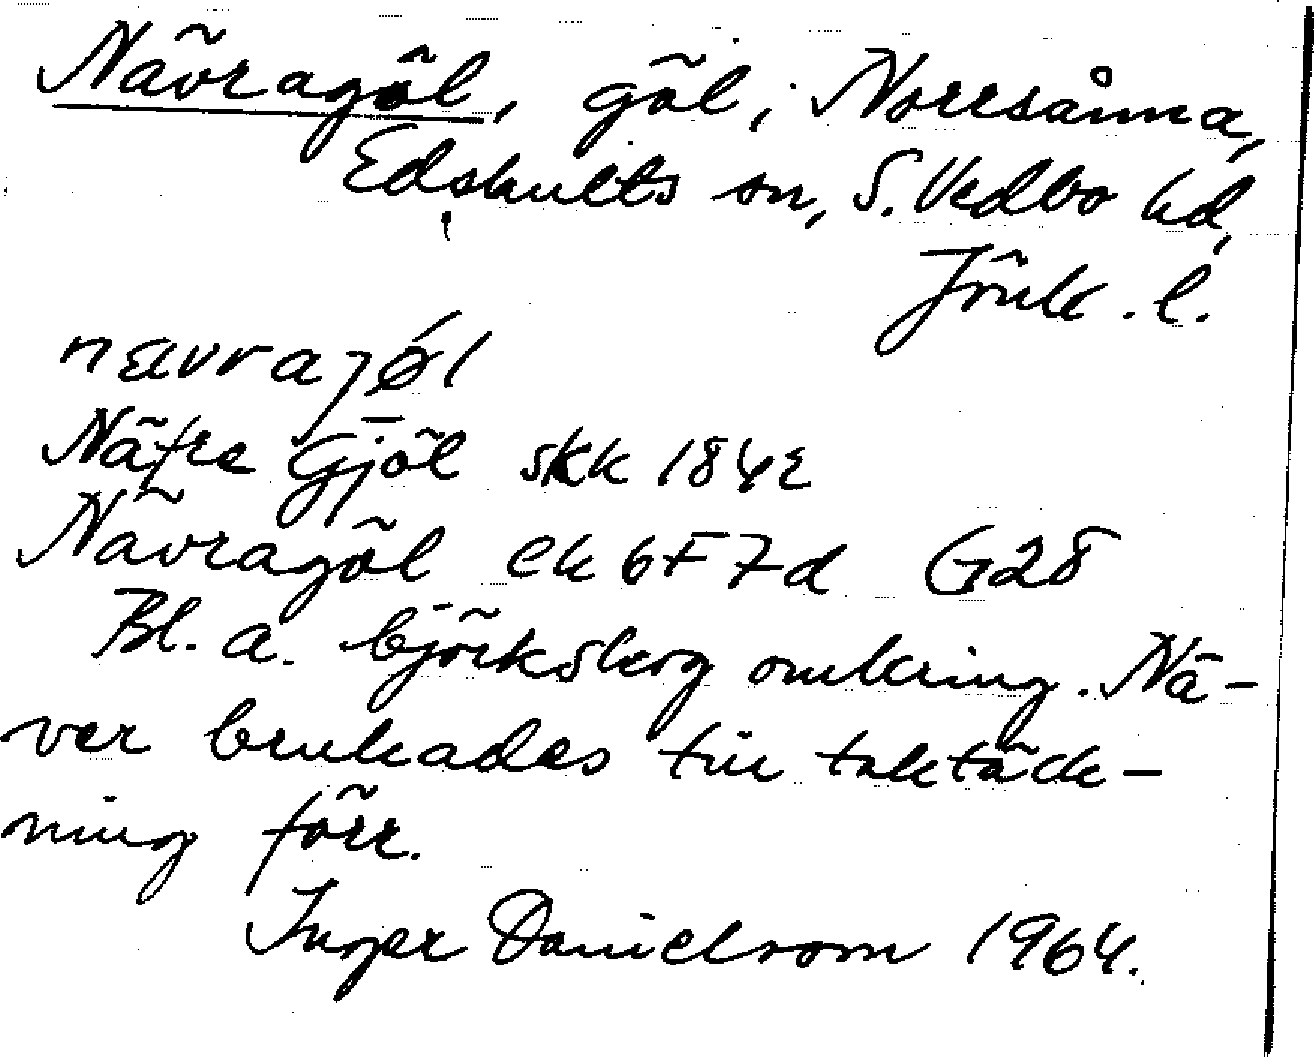 Nävragöl, göl, Norrsånna,
Edshults sn, S. Vedbo hd,
Jönk. l.
Näfre Gjöl skk 1842
Nävragöl ek 6F 7d G28
Bl. a. björkskog omkring. Nä-
ver brukades till taktäck-
ning förr.
Inger Danielsson 1964.